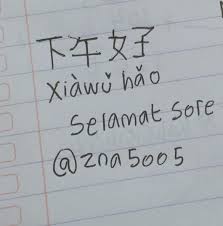 下午好
Xiàwǔ hǎo
Selamat sore
@zna5005